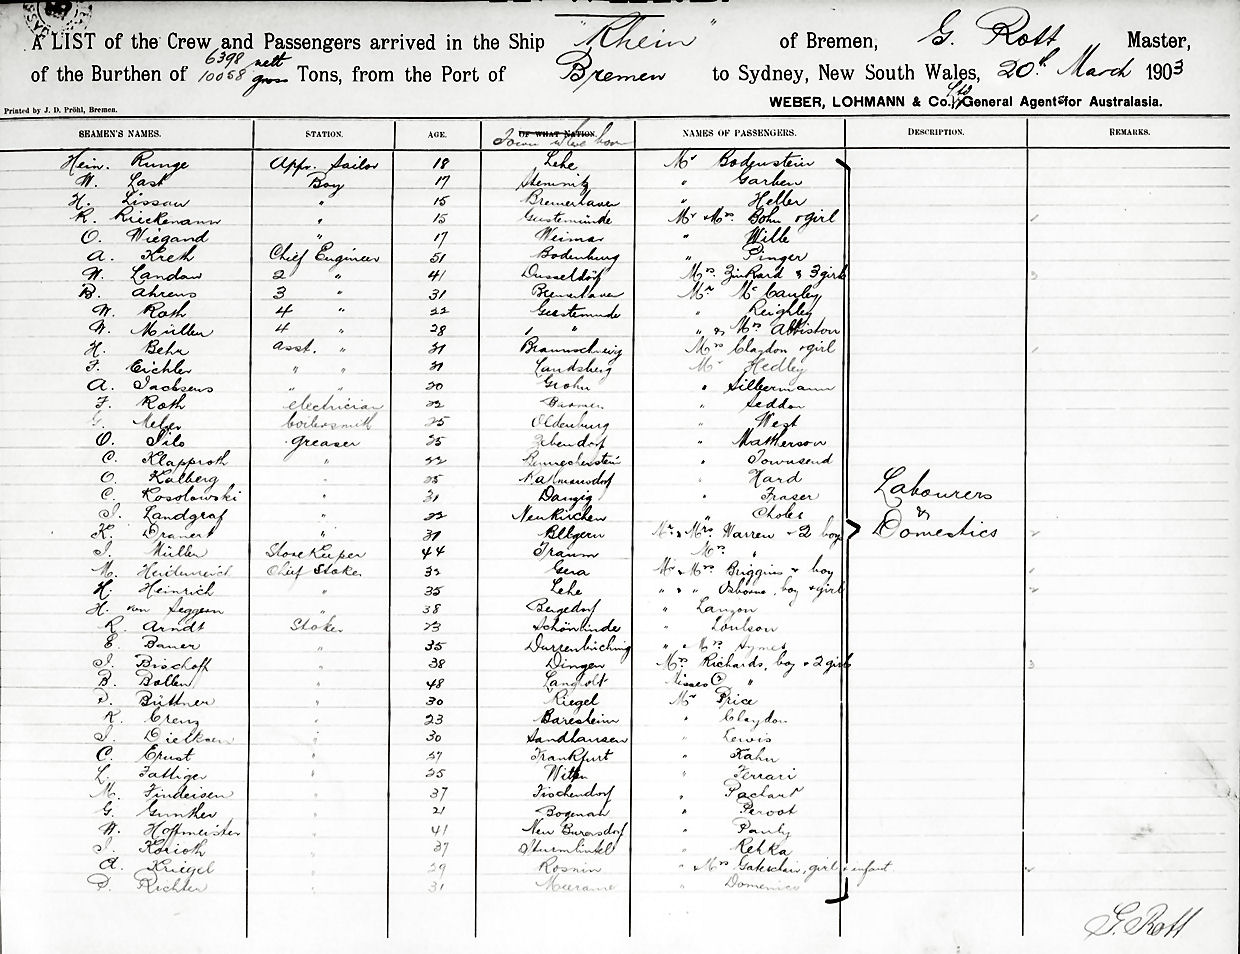 A LIST of the Crew and Passengers arrived in the Ship "Rhein" of Bremen, G. Rott Master,
of the Burthen of 6398 nett 10058 gross Tons, from the Port of Bremen to Sydney, New South Wales, 20th March 1903
Printed by J. D. Pröhl, Bremen.
WEBER, LOHMANN & Co. Ltd General Agents for Australasia.
SEAMEN'S NAMES. STATION. AGE. OF WHAT NATION. Town where born NAMES OF PASSENGERS. DESCRIPTION. REMARKS.
Hein. Runge Appr. Sailor 18 Lehe Mr Bodenstein
W. Last Boy 17 " Garben
H. Lissow " 15 Bremerhaven " Heller
R. Rieckemann " 15 Geestemünde Mr & Mrs Bohn & girl
O. Wiegand " 17 Weimar " Wille
A. Kreth Chief Engineer 51 Bodenburg " Pinger
W. Landau 2 " 41 Dusseldorf Mrs & 3 girls
B. Ahrens 3 " 31 Bremerhaven Mr Mc Cauley
W. Roth 4 " 22 Geestemunde " Keighley
W. Müller 4 " 28 " " & Mrs Abbiston
H. Behr asst. " 31 Braunschweig Mrs Claydon & girl
F. Eichler " " 31 Landsberg Mr Hedley
A. " " 20 Grohn " Silbermann
F. Roth electrician 22 Barmen " Seddon
boilersmith 25 Oldenburg " West
O. greaser 25 " Matherson
C. Klapproth " 22 Benneckenstein " Townsend
O. Kalberg " 25 " Hard
C. Kosolowski " 31 Danzig " Fraser
J. Landgraf " 22 Neukirchen " Choles
Labourers
&
Domestics
K. " 31 Mr & Mrs Warren & 2 boys
J. Müller Storekeeper 44 Mrs "
M. Heidenreich Chief Stoker 32 Gera Mr & Mrs Briggins & boy
H. Heinrich " 35 Lehe " " " Osborne, boy & girl
H. von Seggern " 38 Bergedorf " Lanyon
R. Arndt Stoker 23 Schönlinde " Loulson
E. Bauer " 35 " & Mrs Symes
J. Bischoff " 38 Dingen Mrs Richards, boy & 2 girls
B. Bollen " 48 Misses C "
P. Büttner " 30 Riegel Mr Price
K. Crenz " 23 " Claydon
J. " 30 Sandhausen " Lewis
C. Ernst " 27 Frankfurt " Kahn
L. Fattiger " 25 Witten " Ferrari
M. Findeisen " 37 Tischendorf
G. Gunther " 21 " Peroot
W. Hoffmeister " 41 " Pauly
J. Korioth " 37 " Rehka
A. Kriegel " 29 " & Mrs girl & infant
P. Richter " 31 Meerane " Domenico
G. Rott